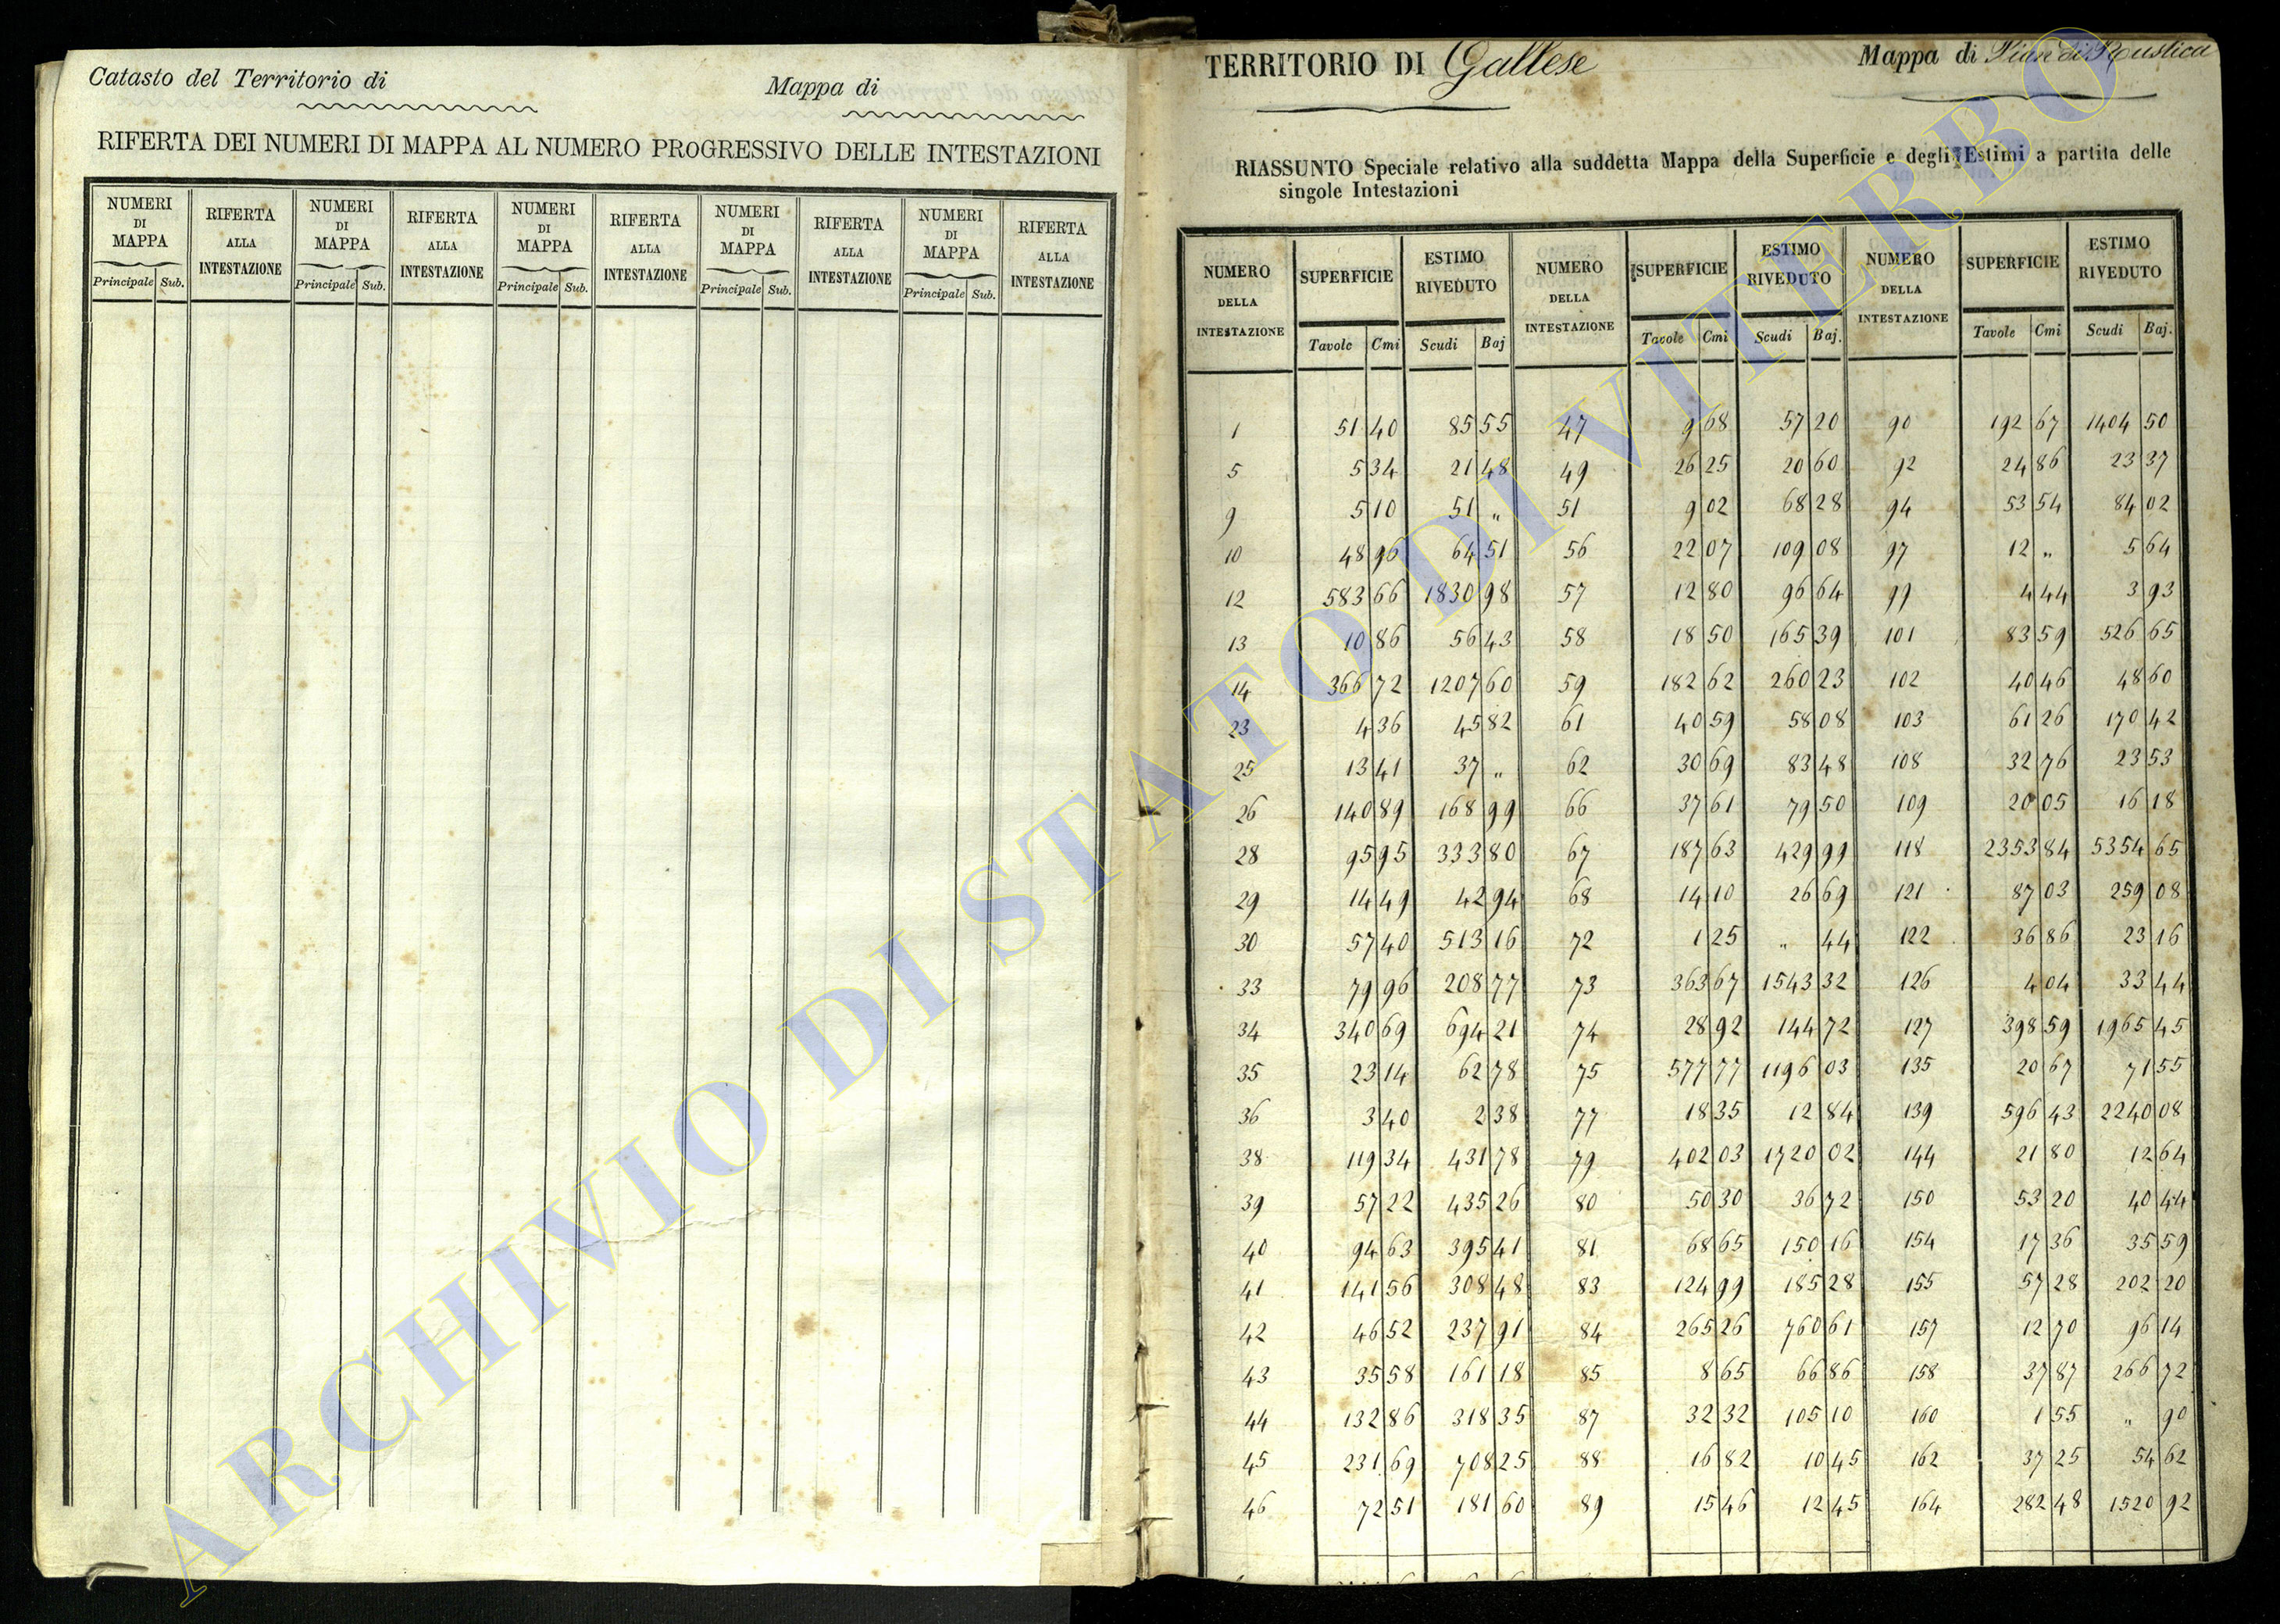 Catasto del Territorio di
Mappa di
RIFERTA DEI NUMERI DI MAPPA AL NUMERO PROGRESSIVO DELLE INTESTAZIONI
NUMERI DI MAPPA RIFERTA ALLA INTESTAZIONE NUMERI DI MAPPA RIFERTA ALLA INTESTAZIONE NUMERI DI MAPPA RIFERTA ALLA INTESTAZIONE NUMERI DI MAPPA RIFERTA ALLA INTESTAZIONE NUMERI DI MAPPA RIFERTA ALLA INTESTAZIONE
Principale Sub. Principale Sub. Principale Sub. Principale Sub. Principale Sub.
TERRITORIO DI Gallese
Mappa di Pian di Rustica
RIASSUNTO Speciale relativo alla suddetta Mappa della Superficie e degli Estimi a partita delle
singole Intestazioni
NUMERO DELLA INTESTAZIONE SUPERFICIE ESTIMO RIVEDUTO NUMERO DELLA INTESTAZIONE SUPERFICIE ESTIMO RIVEDUTO NUMERO DELLA INTESTAZIONE SUPERFICIE ESTIMO RIVEDUTO
Tavole Cmi Scudi Baj Tavole Cmi Scudi Baj. Tavole Cmi Scudi Baj.
1 51 40 85 55 47 9 68 57 20 90 192 67 1404 50
5 5 34 21 48 49 26 25 20 60 92 24 86 23 37
9 5 10 51 „ 51 9 02 68 28 94 53 54 84 02
10 48 96 64 51 56 22 07 109 08 97 12 „ 5 64
12 583 66 1830 98 57 12 80 96 64 99 4 44 3 93
13 10 86 56 43 58 18 50 165 39 101 83 59 526 65
14 366 72 1207 60 59 182 62 260 23 102 40 46 48 60
23 4 36 45 82 61 40 59 58 08 103 61 26 170 42
25 13 41 37 „ 62 30 69 83 48 108 32 76 23 53
26 140 89 168 99 66 37 61 79 50 109 20 05 16 18
28 95 95 333 80 67 187 63 429 99 118 2353 84 5354 65
29 14 49 42 94 68 14 10 26 69 121 87 03 259 08
30 57 40 513 16 72 1 25 „ 44 122 36 86 23 16
33 79 96 208 77 73 363 67 1543 32 126 4 04 33 44
34 340 69 694 21 74 28 92 144 72 127 398 59 1965 45
35 23 14 62 78 75 577 77 1196 03 135 20 67 71 55
36 3 40 2 38 77 18 35 12 84 139 596 43 2240 08
38 119 34 431 78 79 402 03 1720 02 144 21 80 12 64
39 57 22 435 26 80 50 30 36 72 150 53 20 40 44
40 94 63 395 41 81 68 65 150 16 154 17 36 35 59
41 141 56 308 48 83 124 99 185 28 155 57 28 202 20
42 46 52 237 91 84 265 26 760 61 157 12 70 96 14
43 35 58 161 18 85 8 65 66 86 158 37 87 266 72
44 132 86 318 35 87 32 32 105 10 160 1 55 „ 90
45 231 69 708 25 88 16 82 10 45 162 37 25 54 62
46 72 51 181 60 89 15 46 12 45 164 282 48 1520 92
ARCHIVIO DI STATO DI VITERBO